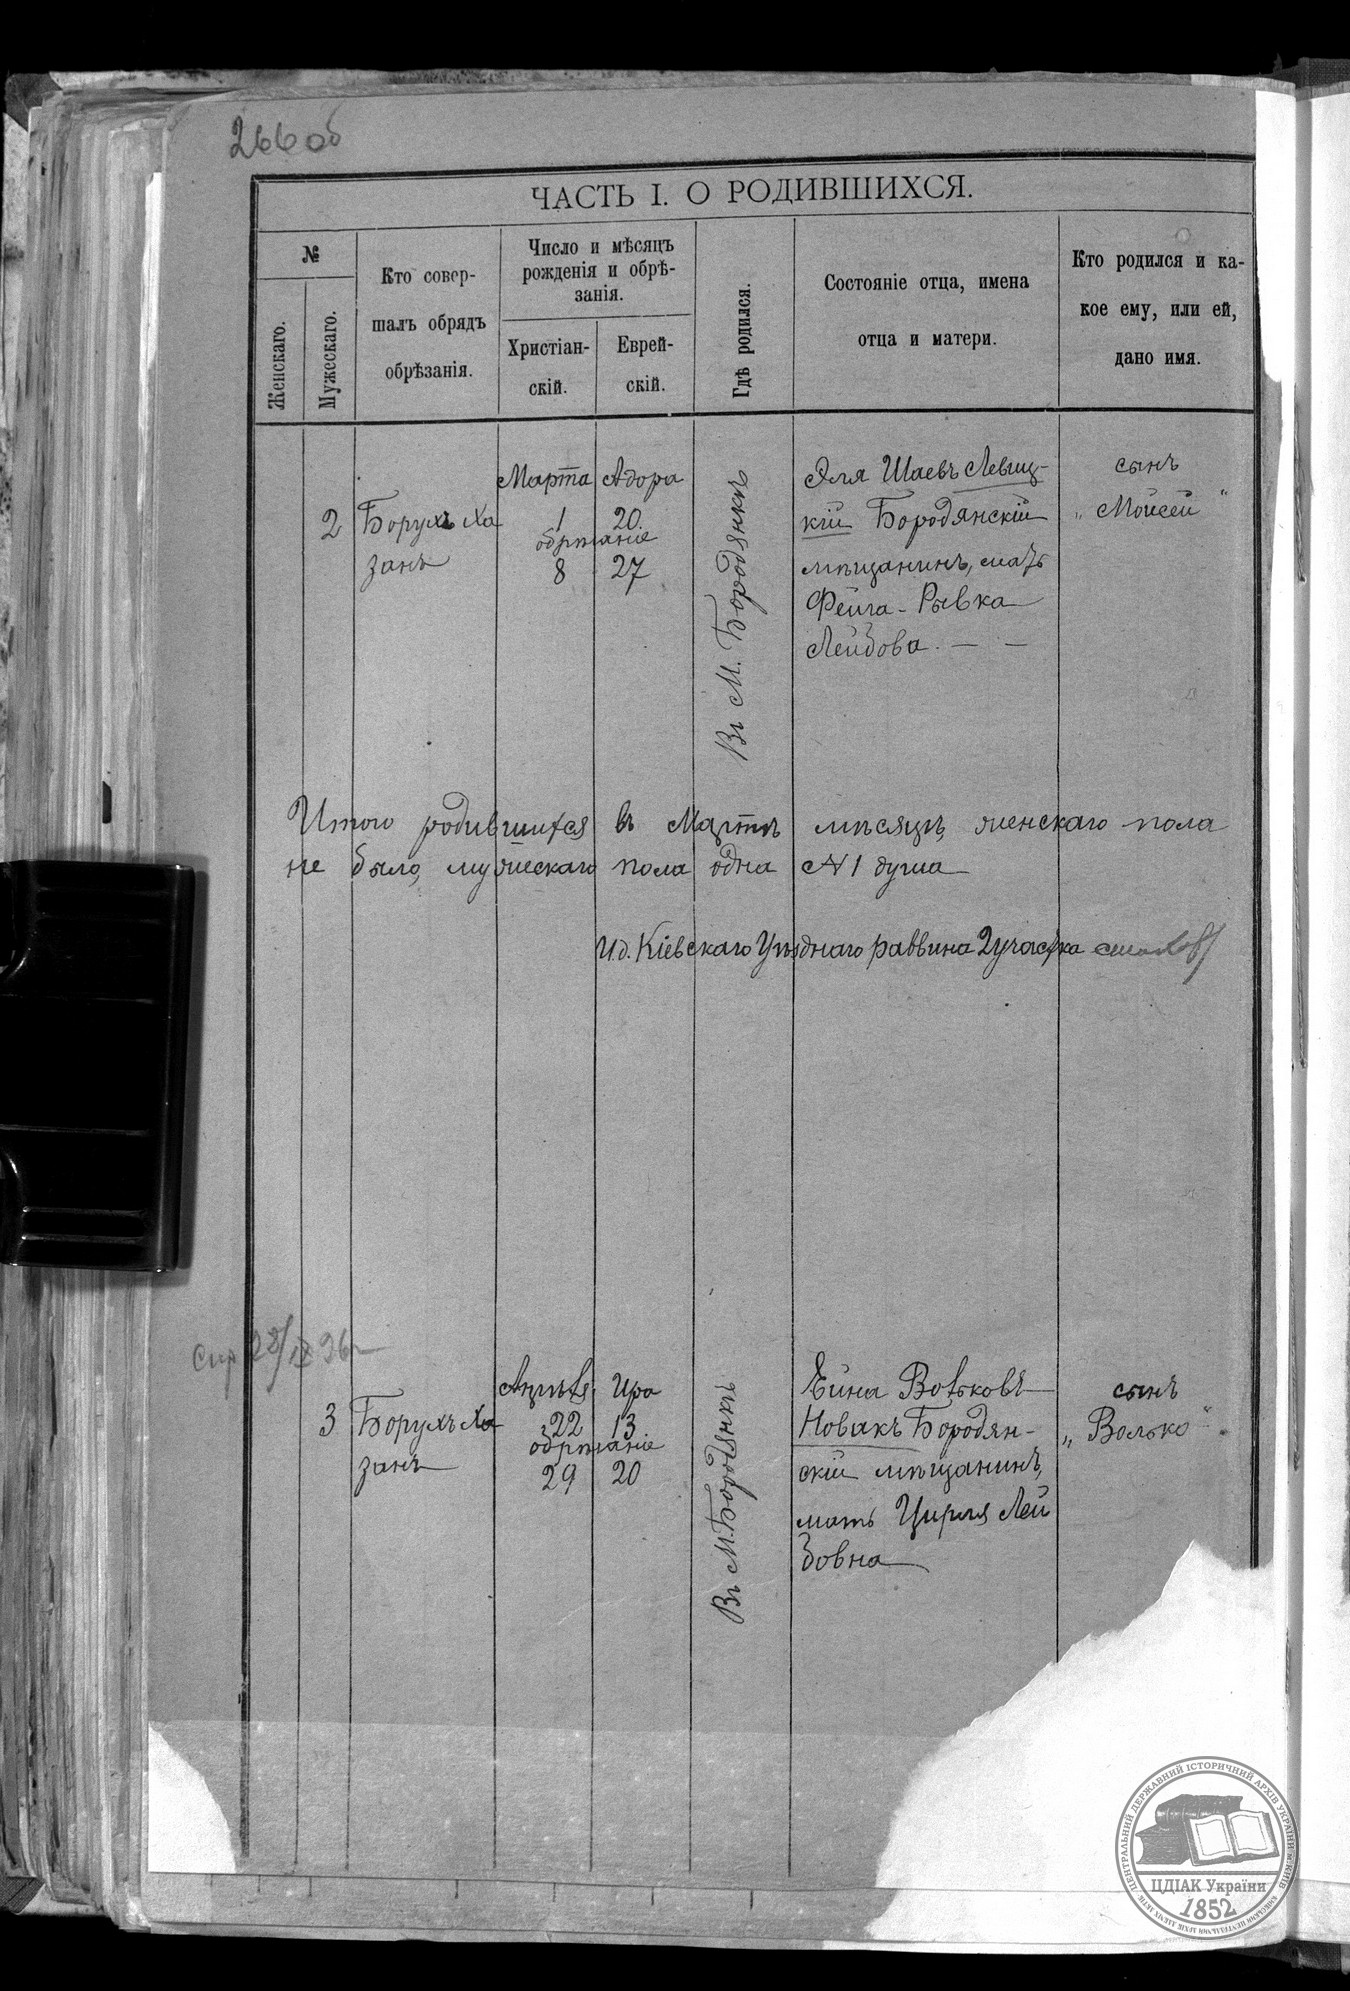 266об
ЧАСТЬ I. О РОДИВШИХСЯ.
№
Женскаго.
Мужескаго.
Кто совер-
шалъ обрядъ
обрѣзанія.
Число и мѣсяцъ
рожденія и обрѣ-
занія.
Христіан-
скій.
Еврей-
скій.
Гдѣ родился.
Состояніе отца, имена
отца и матери.
Кто родился и ка-
кое ему, или ей,
дано имя.
2
Борухъ Ха
занъ
Марта
1
обрѣзаніе
8
Адора
20.
27
Въ М. Бородянкѣ
Эля Шаевъ Левиц-
кій Бородянскій
мѣщанинъ, мать
Фейга - Рывка
Лейбова. — —
сынъ
„Мойсей“
Итого родившихся въ Мартѣ мѣсяцѣ, женскаго пола
не было, мужескаго пола одна № 1 душа
И.д. Кіевскаго Уѣзднаго раввина 2 участка
3
Борухъ Ха
занъ
Апрѣля
22
обрѣзаніе
29
Ира
13
20
Въ М. Бородянкѣ
Ейна Вольковъ
Новакъ Бородян-
скій мѣщанинъ,
мать Цирля Лей
бовна
сынъ
„Волько“.
ЦЕНТРАЛЬНИЙ ДЕРЖАВНИЙ ІСТОРИЧНИЙ АРХІВ УКРАЇНИ м. КИЇВ
ЦДІАК України
1852